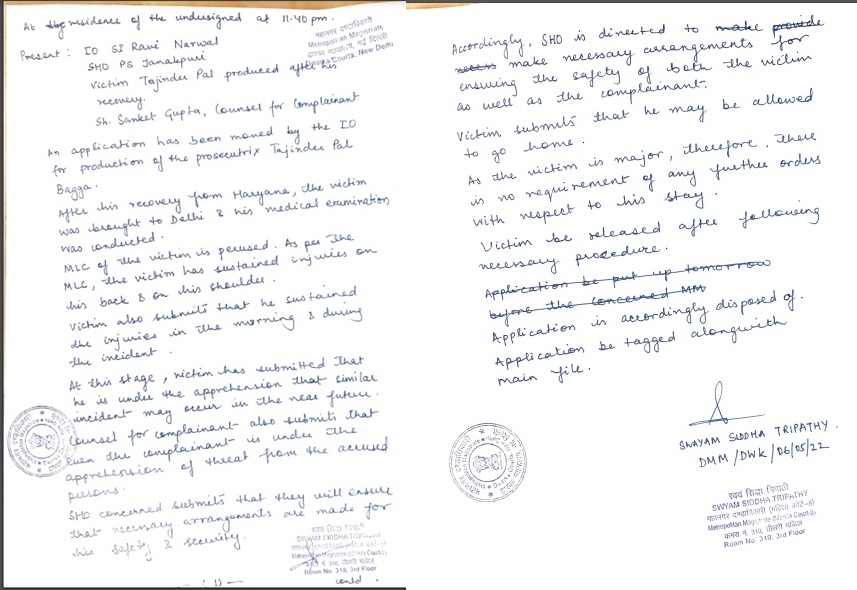 At the residence of the undersigned at 11.40 pm.
महानगर दण्डाधिकारी
Metropolitan Magistrate
Dwarka Courts, New Delhi
Present : IO SI Ravi Narwal
SHO PS Janakpuri
Victim Tajinder Pal produced after his
recovery.
Sh. Sanket Gupta, Counsel for Complainant
An application has been moved by the IO
for production of the prosecutrix Tajinder Pal
Bagga.
After his recovery from Haryana, the victim
was brought to Delhi & his medical examination
was conducted.
MLC of the victim is perused. As per the
MLC, the victim has sustained injuries on
his back & on his shoulder.
Victim also submits that he sustained
the injuries in the morning & during
the incident.
At this stage, victim has submitted that
he is under the apprehension that similar
incident may occur in the near future.
Counsel for complainant also submits that
even the complainant is under the
apprehension of threat from the accused
persons.
SHO concerned submits that they will ensure
that necessary arrangements are made for
his safety & security.
स्वयं सिद्धा त्रिपाठी
SWYAM SIDDHA TRIPATHY
Metropolitan Magistrate (Mahila Court-6)
कमरा नं. 310, तीसरी मंजिल
Room No. 310, 3rd Floor
(1)
contd.
Accordingly, SHO is directed to make provide
necess make necessary arrangements for
ensuring the safety of both the victim
as well as the complainant.
Victim submits that he may be allowed
to go home.
As the victim is major, therefore, there
is no requirement of any further orders
with respect to his stay.
Victim be released after following
necessary procedure.
Application be put up tomorrow
before the concerned MM
Application is accordingly disposed of.
Application be tagged alongwith
main file.
SWAYAM SIDDHA TRIPATHY.
DMM/DWK/06/05/22
स्वयं सिद्धा त्रिपाठी
SWYAM SIDDHA TRIPATHY
महानगर दण्डाधिकारी (महिला कोर्ट-6)
Metropolitan Magistrate (Mahila Court-6)
कमरा नं. 310, तीसरी मंजिल
Room No. 310, 3rd Floor